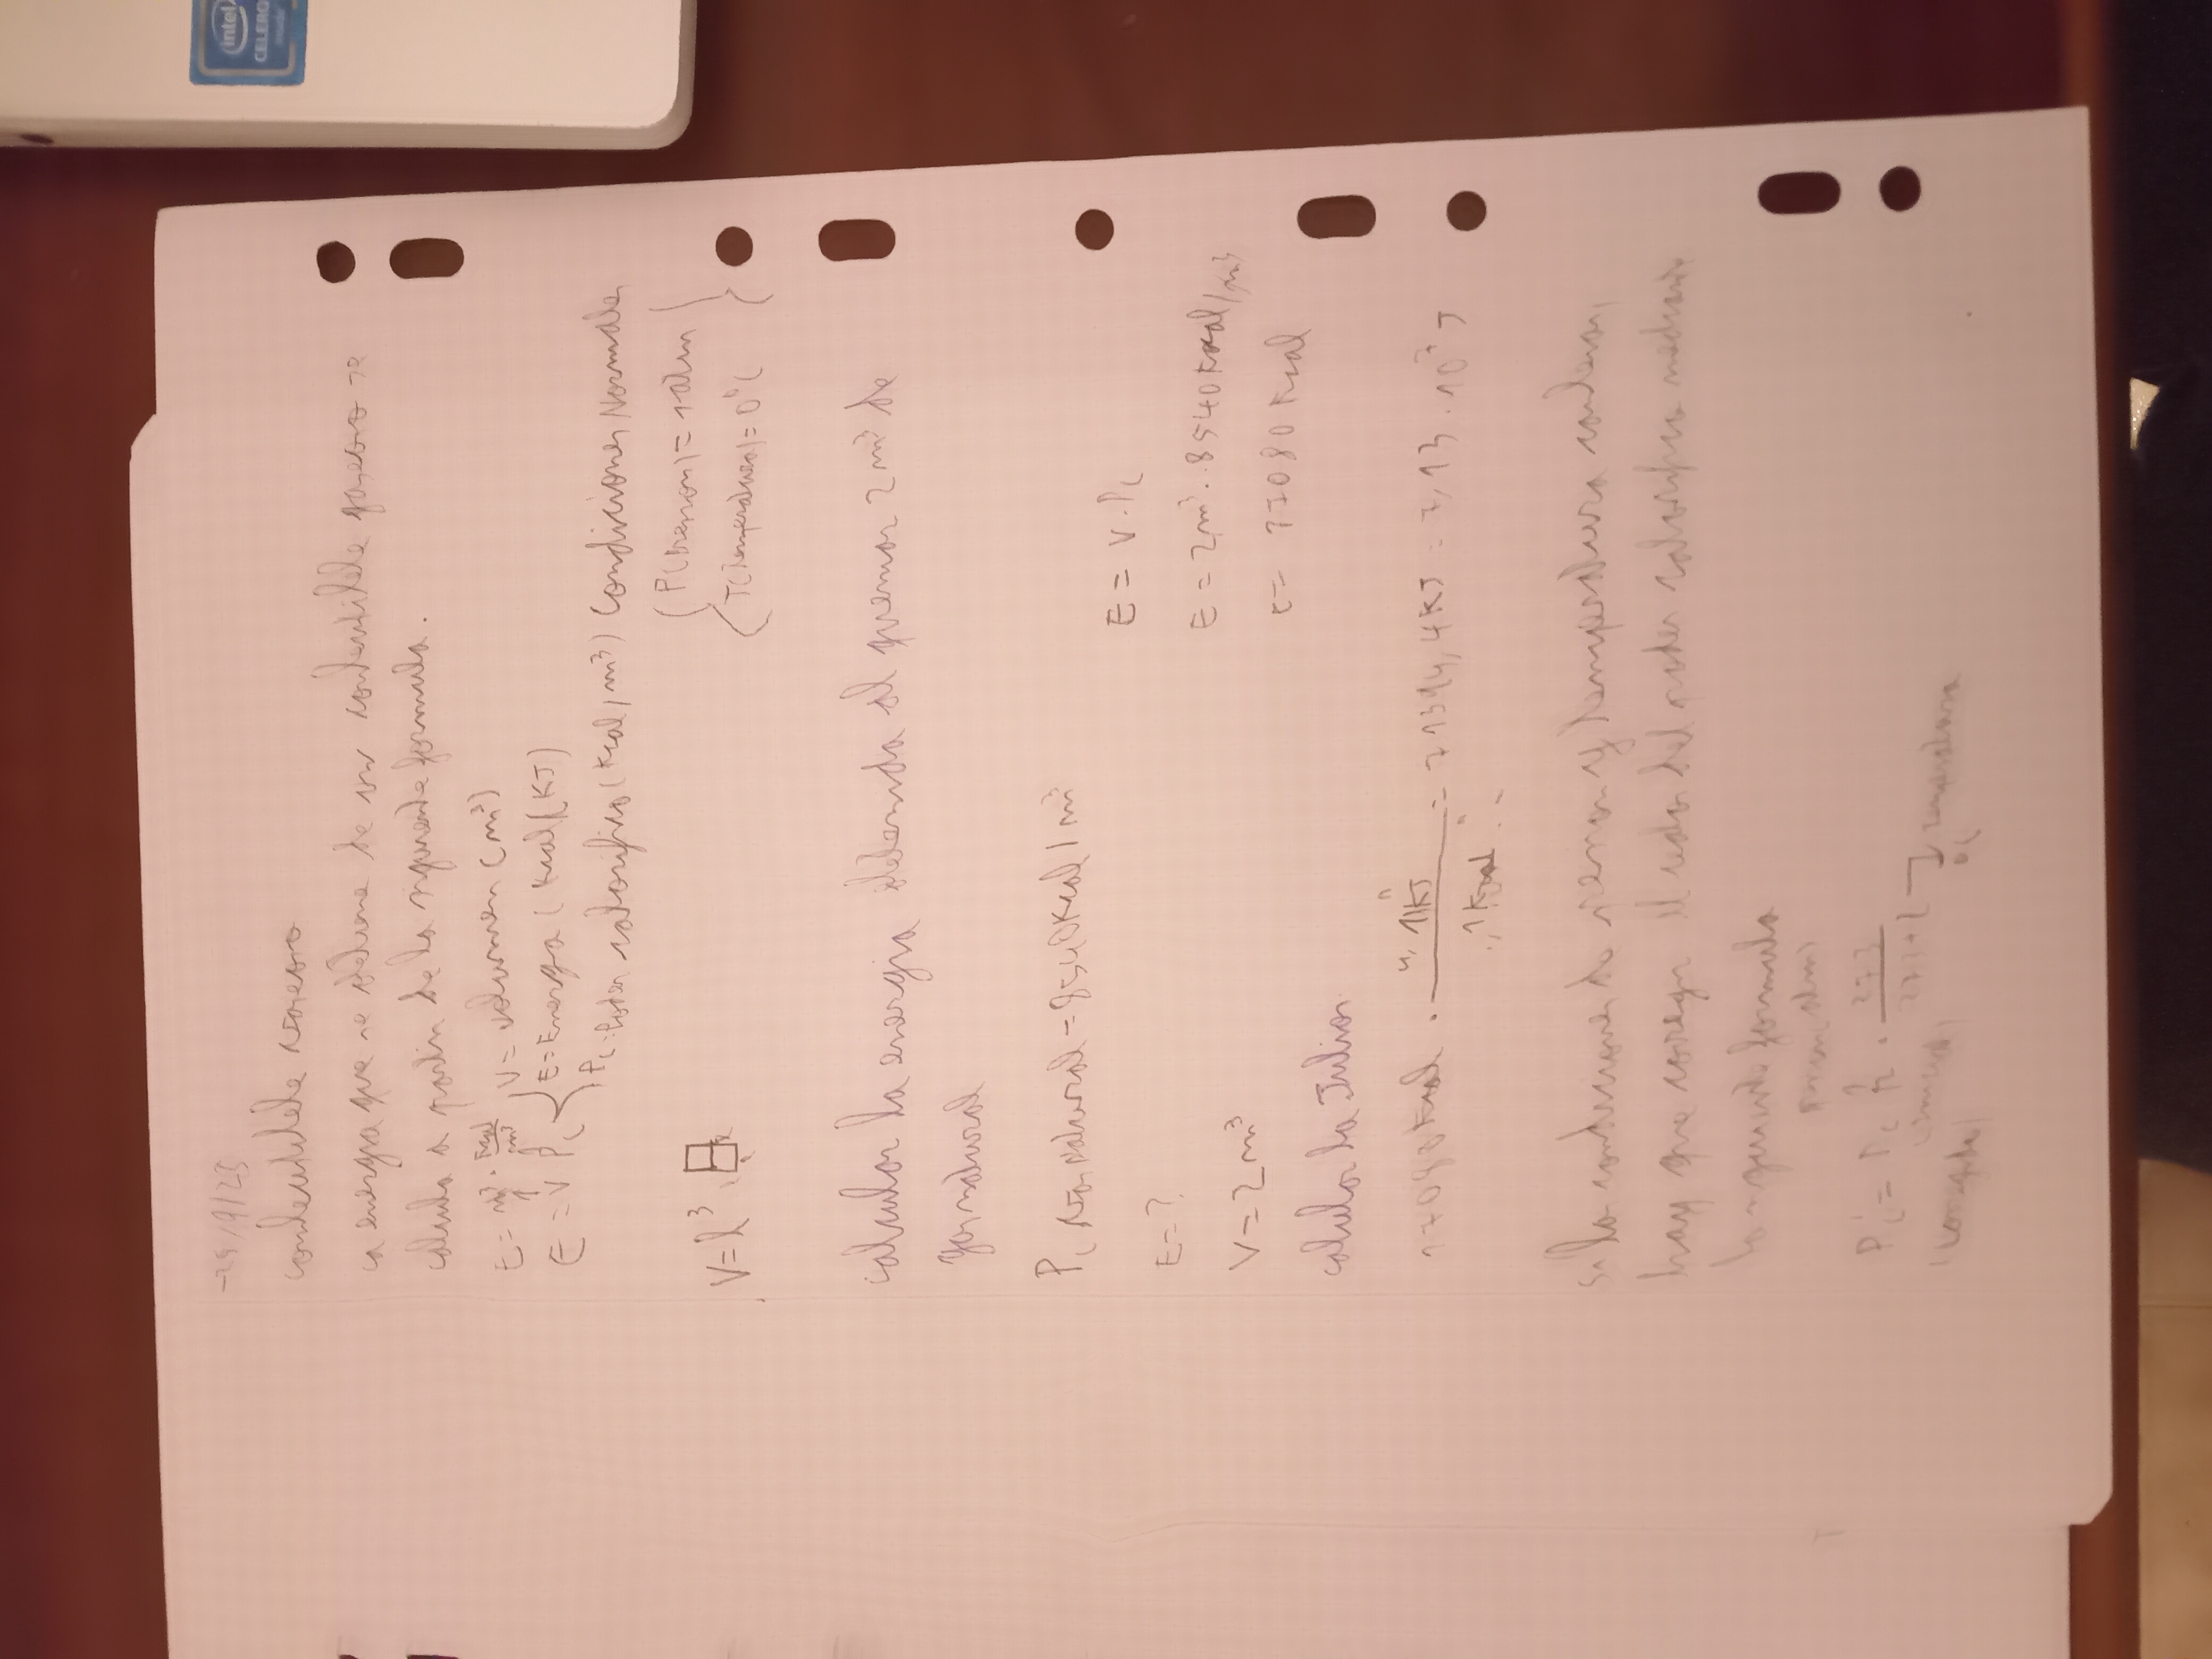 combustible gaseoso
la energia que se obtiene de un combustible gaseoso se
calcula a partir de la siguiente formula.
E = m³ · Kcal/m³
V = Volumen (m³)
E = V Pc
E = Energia (Kcal) (KJ)
Pc = Poder calorifico (Kcal/m³) Condiciones Normales
P(Presion) = 1 atm
T(Temperatura) = 0°C
V = l³
calcular la energia obtenida al quemar 2 m³ de
gas natural
Pc Gas Natural = 8540 Kcal/m³
E = V · Pc
E = ?
E = 2m³ · 8540 Kcal/m³
V = 2 m³
E = 17080 Kcal
calcular la Julios
17080 Kcal · KJ / 1 Kcal = 71394,4 KJ = 7,13 · 10⁷ J
Si las condiciones de presion y temperatura cambian,
hay que coregir el valor del poder calorifico mediante
la siguiente formula
presion (atm)
Pc' = Pc P · 273 / 273+T
temperatura
°C